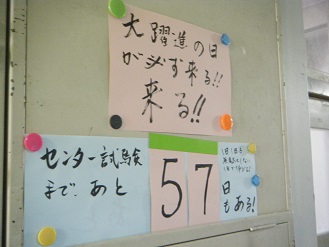 大躍進の日
が必ず来る!!
来る!!
センター試験
まで、あと
57
日
もある!